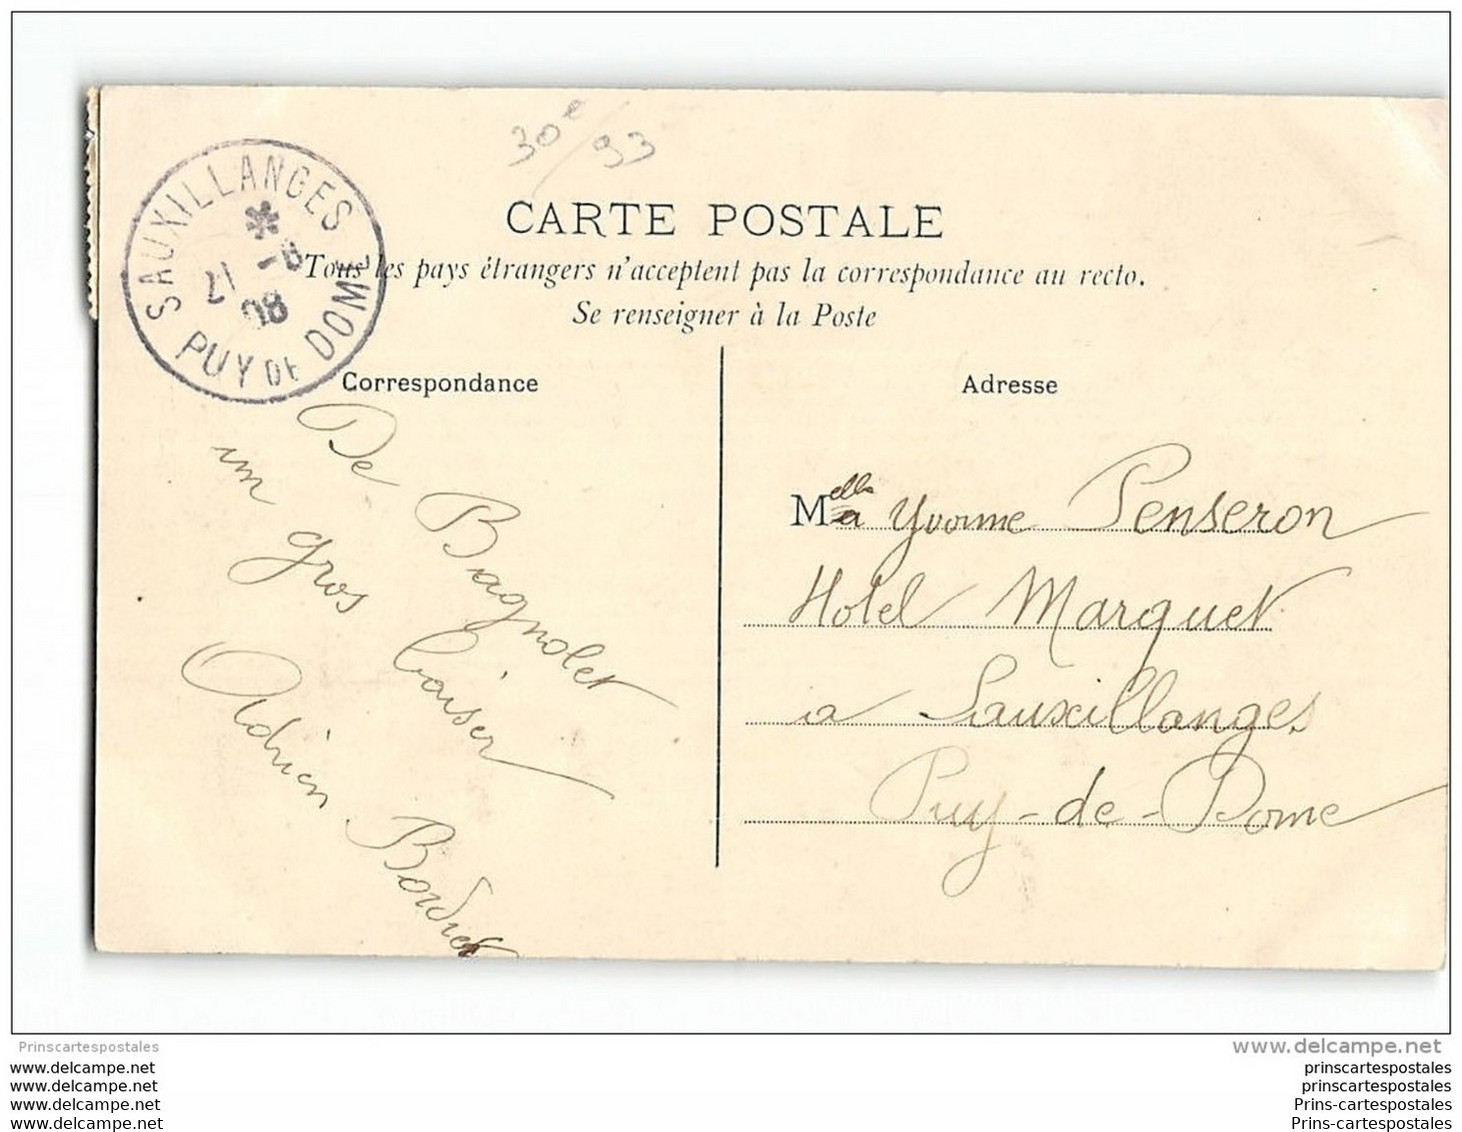 30e/93
SAUXILLANGES
*
17 -8
08
PUY DE DOME
CARTE POSTALE
Tous les pays étrangers n'acceptent pas la correspondance au recto.
Se renseigner à la Poste
Correspondance
De Bagnolet
un gros baiser
Adrien Bordier
Adresse
Melle Yvonne Penseron
Hotel Marquet
a Sauxillanges
Puy-de-Dome
Prinscartespostales
www.delcampe.net
www.delcampe.net
www.delcampe.net
www.delcampe.net
www.delcampe.net
prinscartespostales
prinscartespostales
Prins-cartespostales
Prins-cartespostales